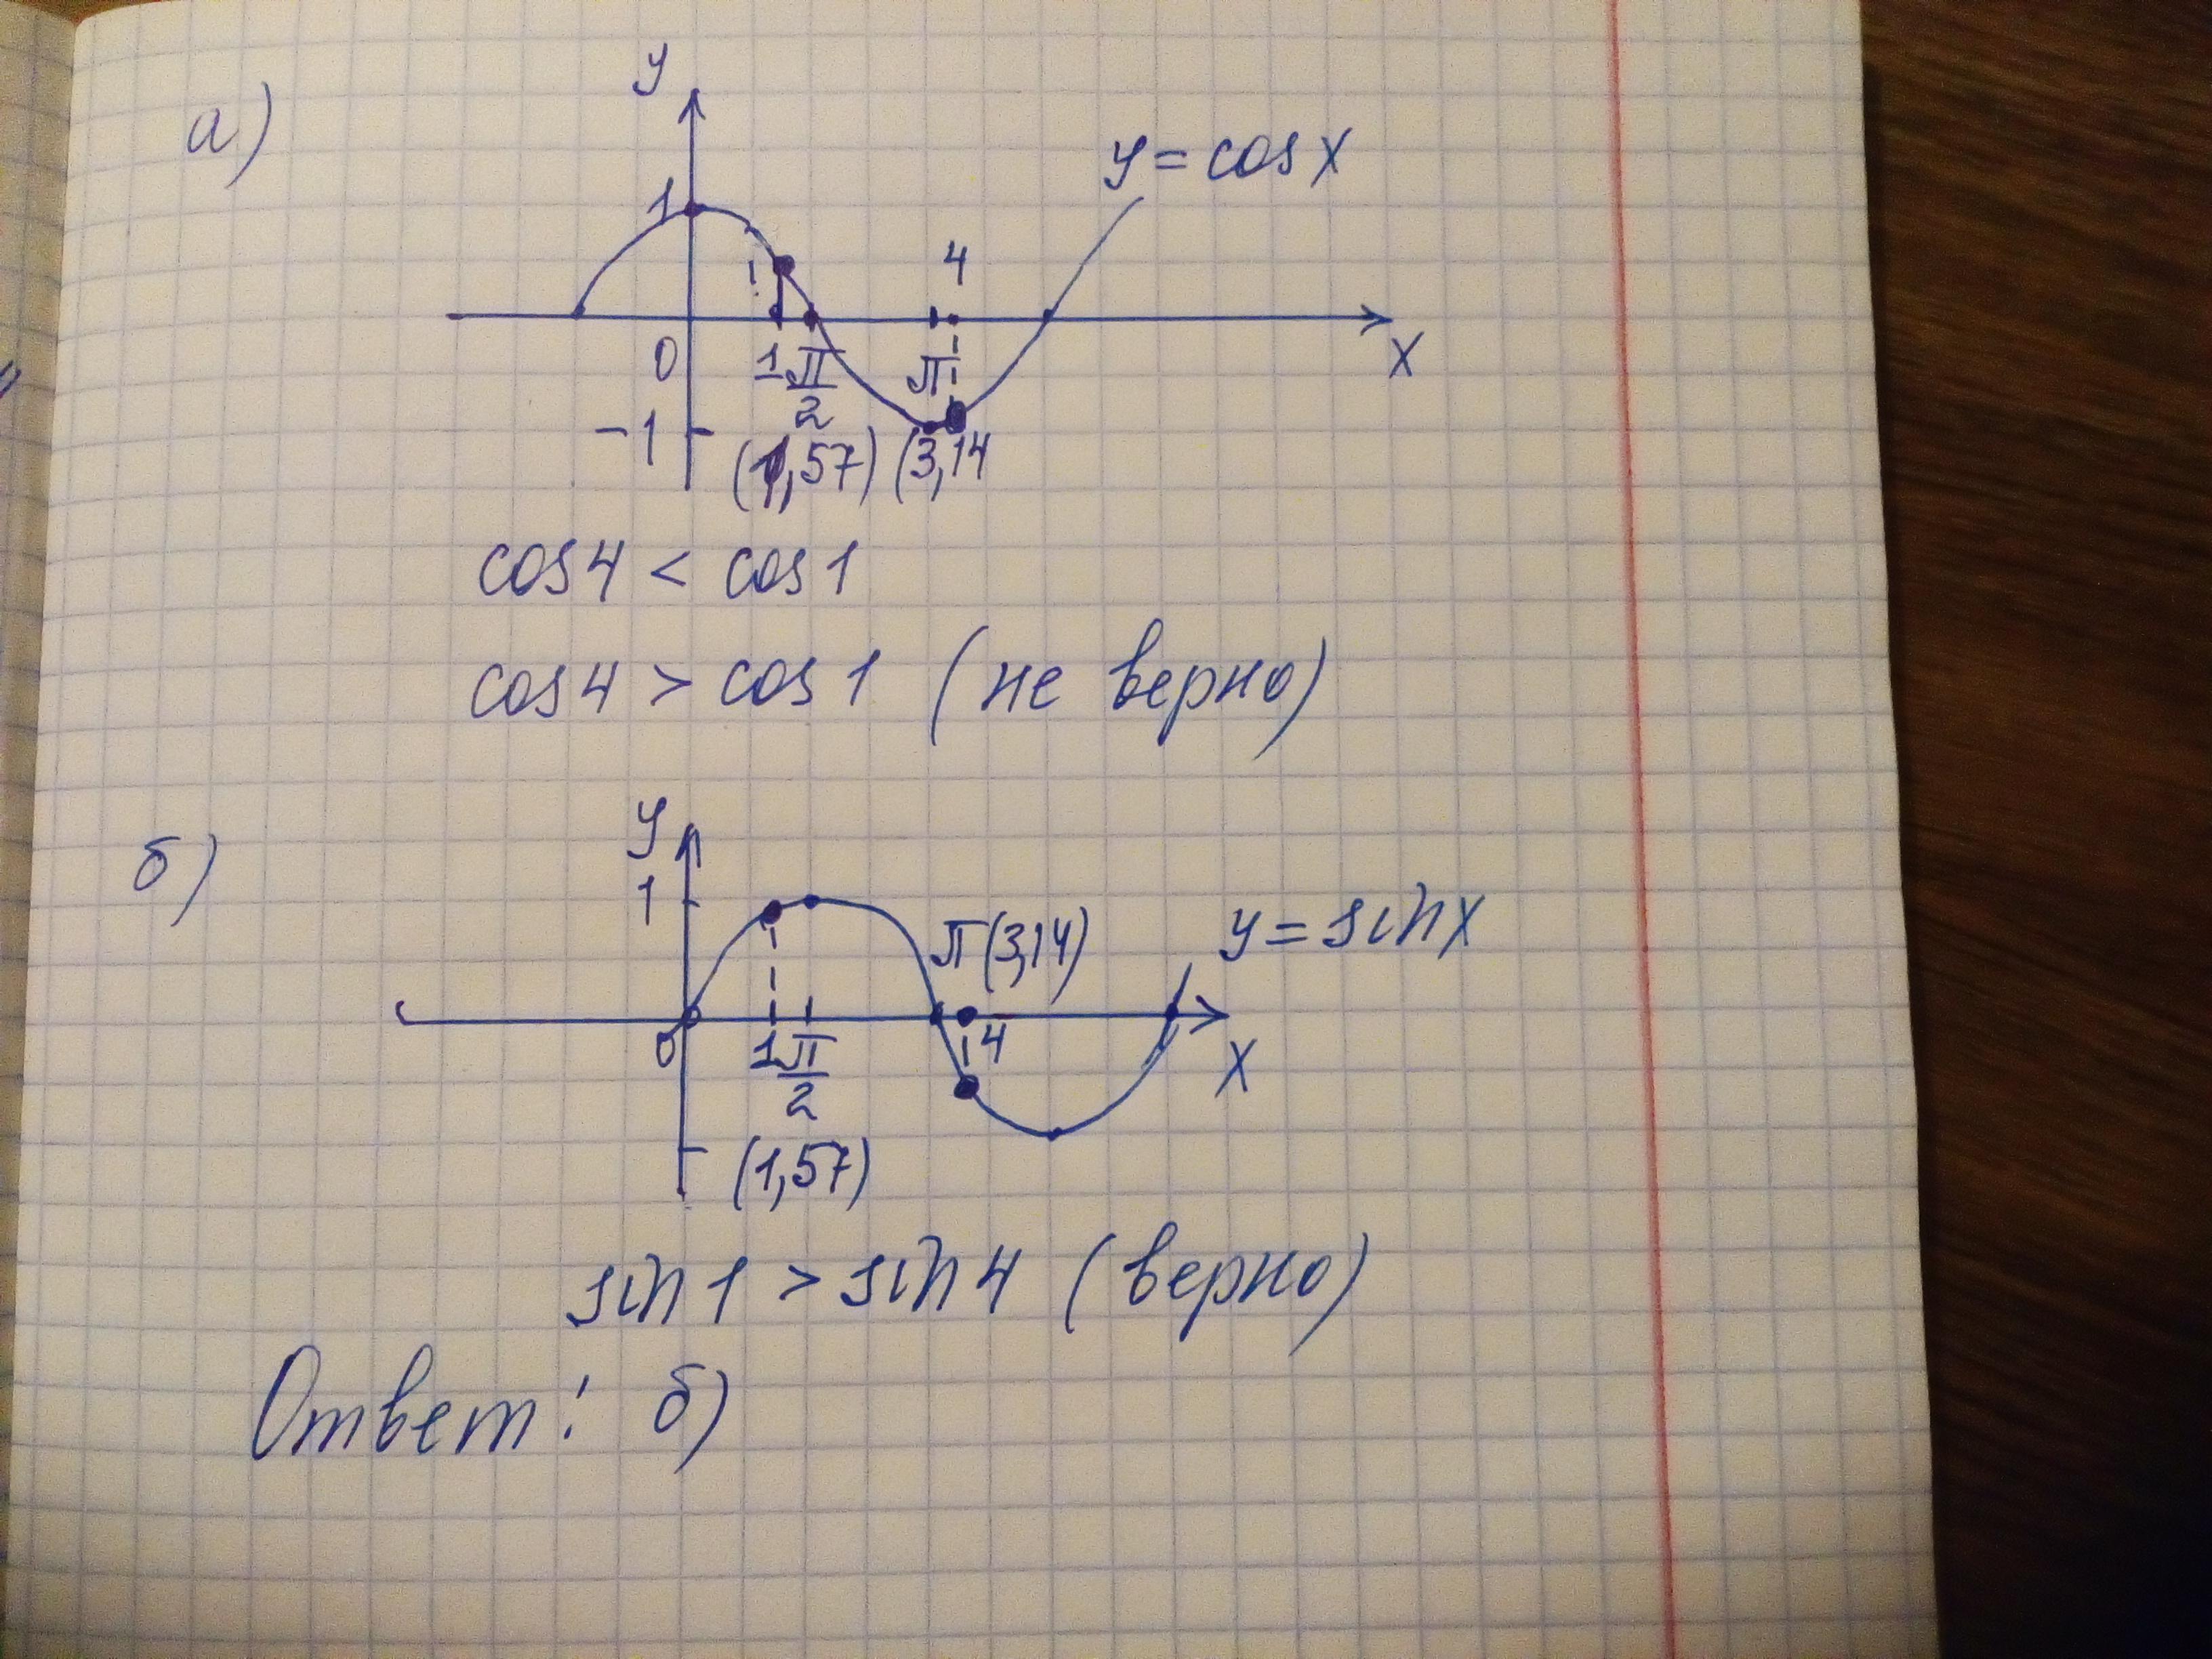 а)
y
y = cos x
1
4
0
1 π/2
π
x
-1
(1,57) (3,14
cos 4 < cos 1
cos 4 > cos 1 (не верно)
б)
y
1
π (3,14)
y = sin x
0
1 π/2
4
x
(1,57)
sin 1 > sin 4 (верно)
Ответ: б)